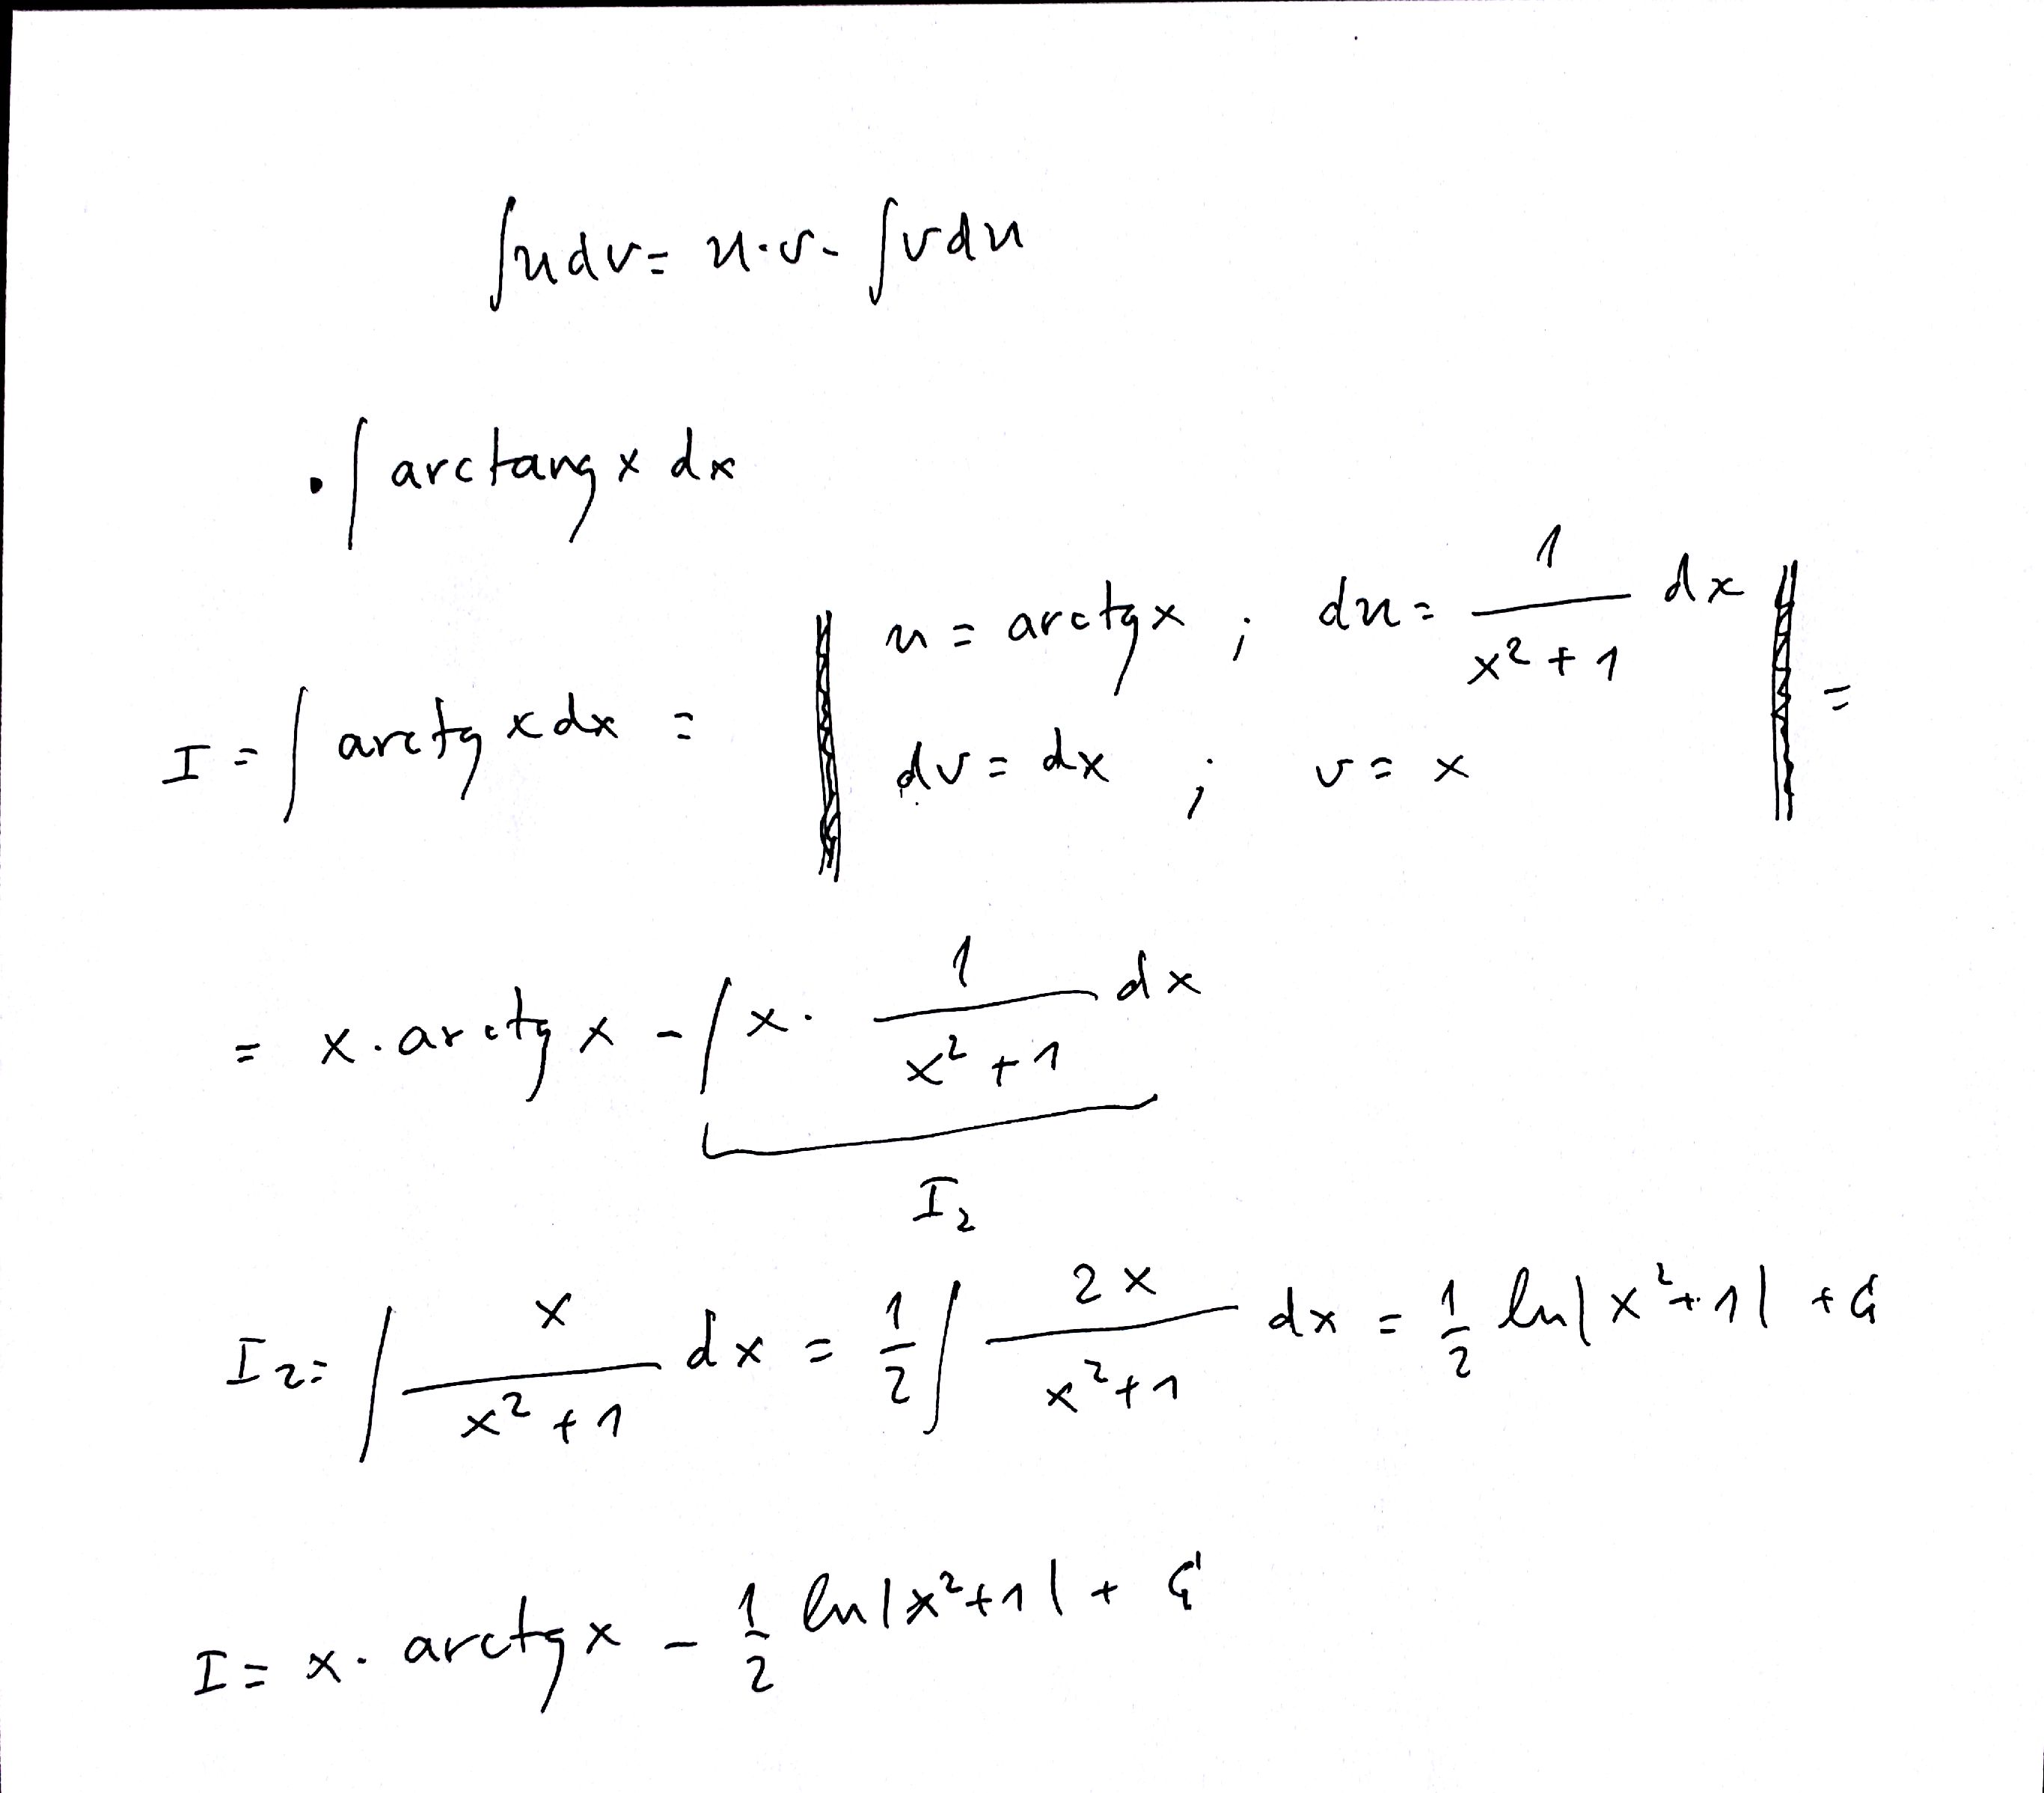 ∫udv = u·v - ∫vdu
• ∫ arctang x dx
I = ∫ arctg x dx = || u = arctg x ; du = 1/(x² + 1) dx
dv = dx ; v = x || =
= x · arctg x - ∫ x · 1/(x² + 1) dx
I₂
I₂ = ∫ x/(x² + 1) dx = 1/2 ∫ 2x/(x² + 1) dx = 1/2 ln|x² + 1| + C
I = x · arctg x - 1/2 ln|x² + 1| + C